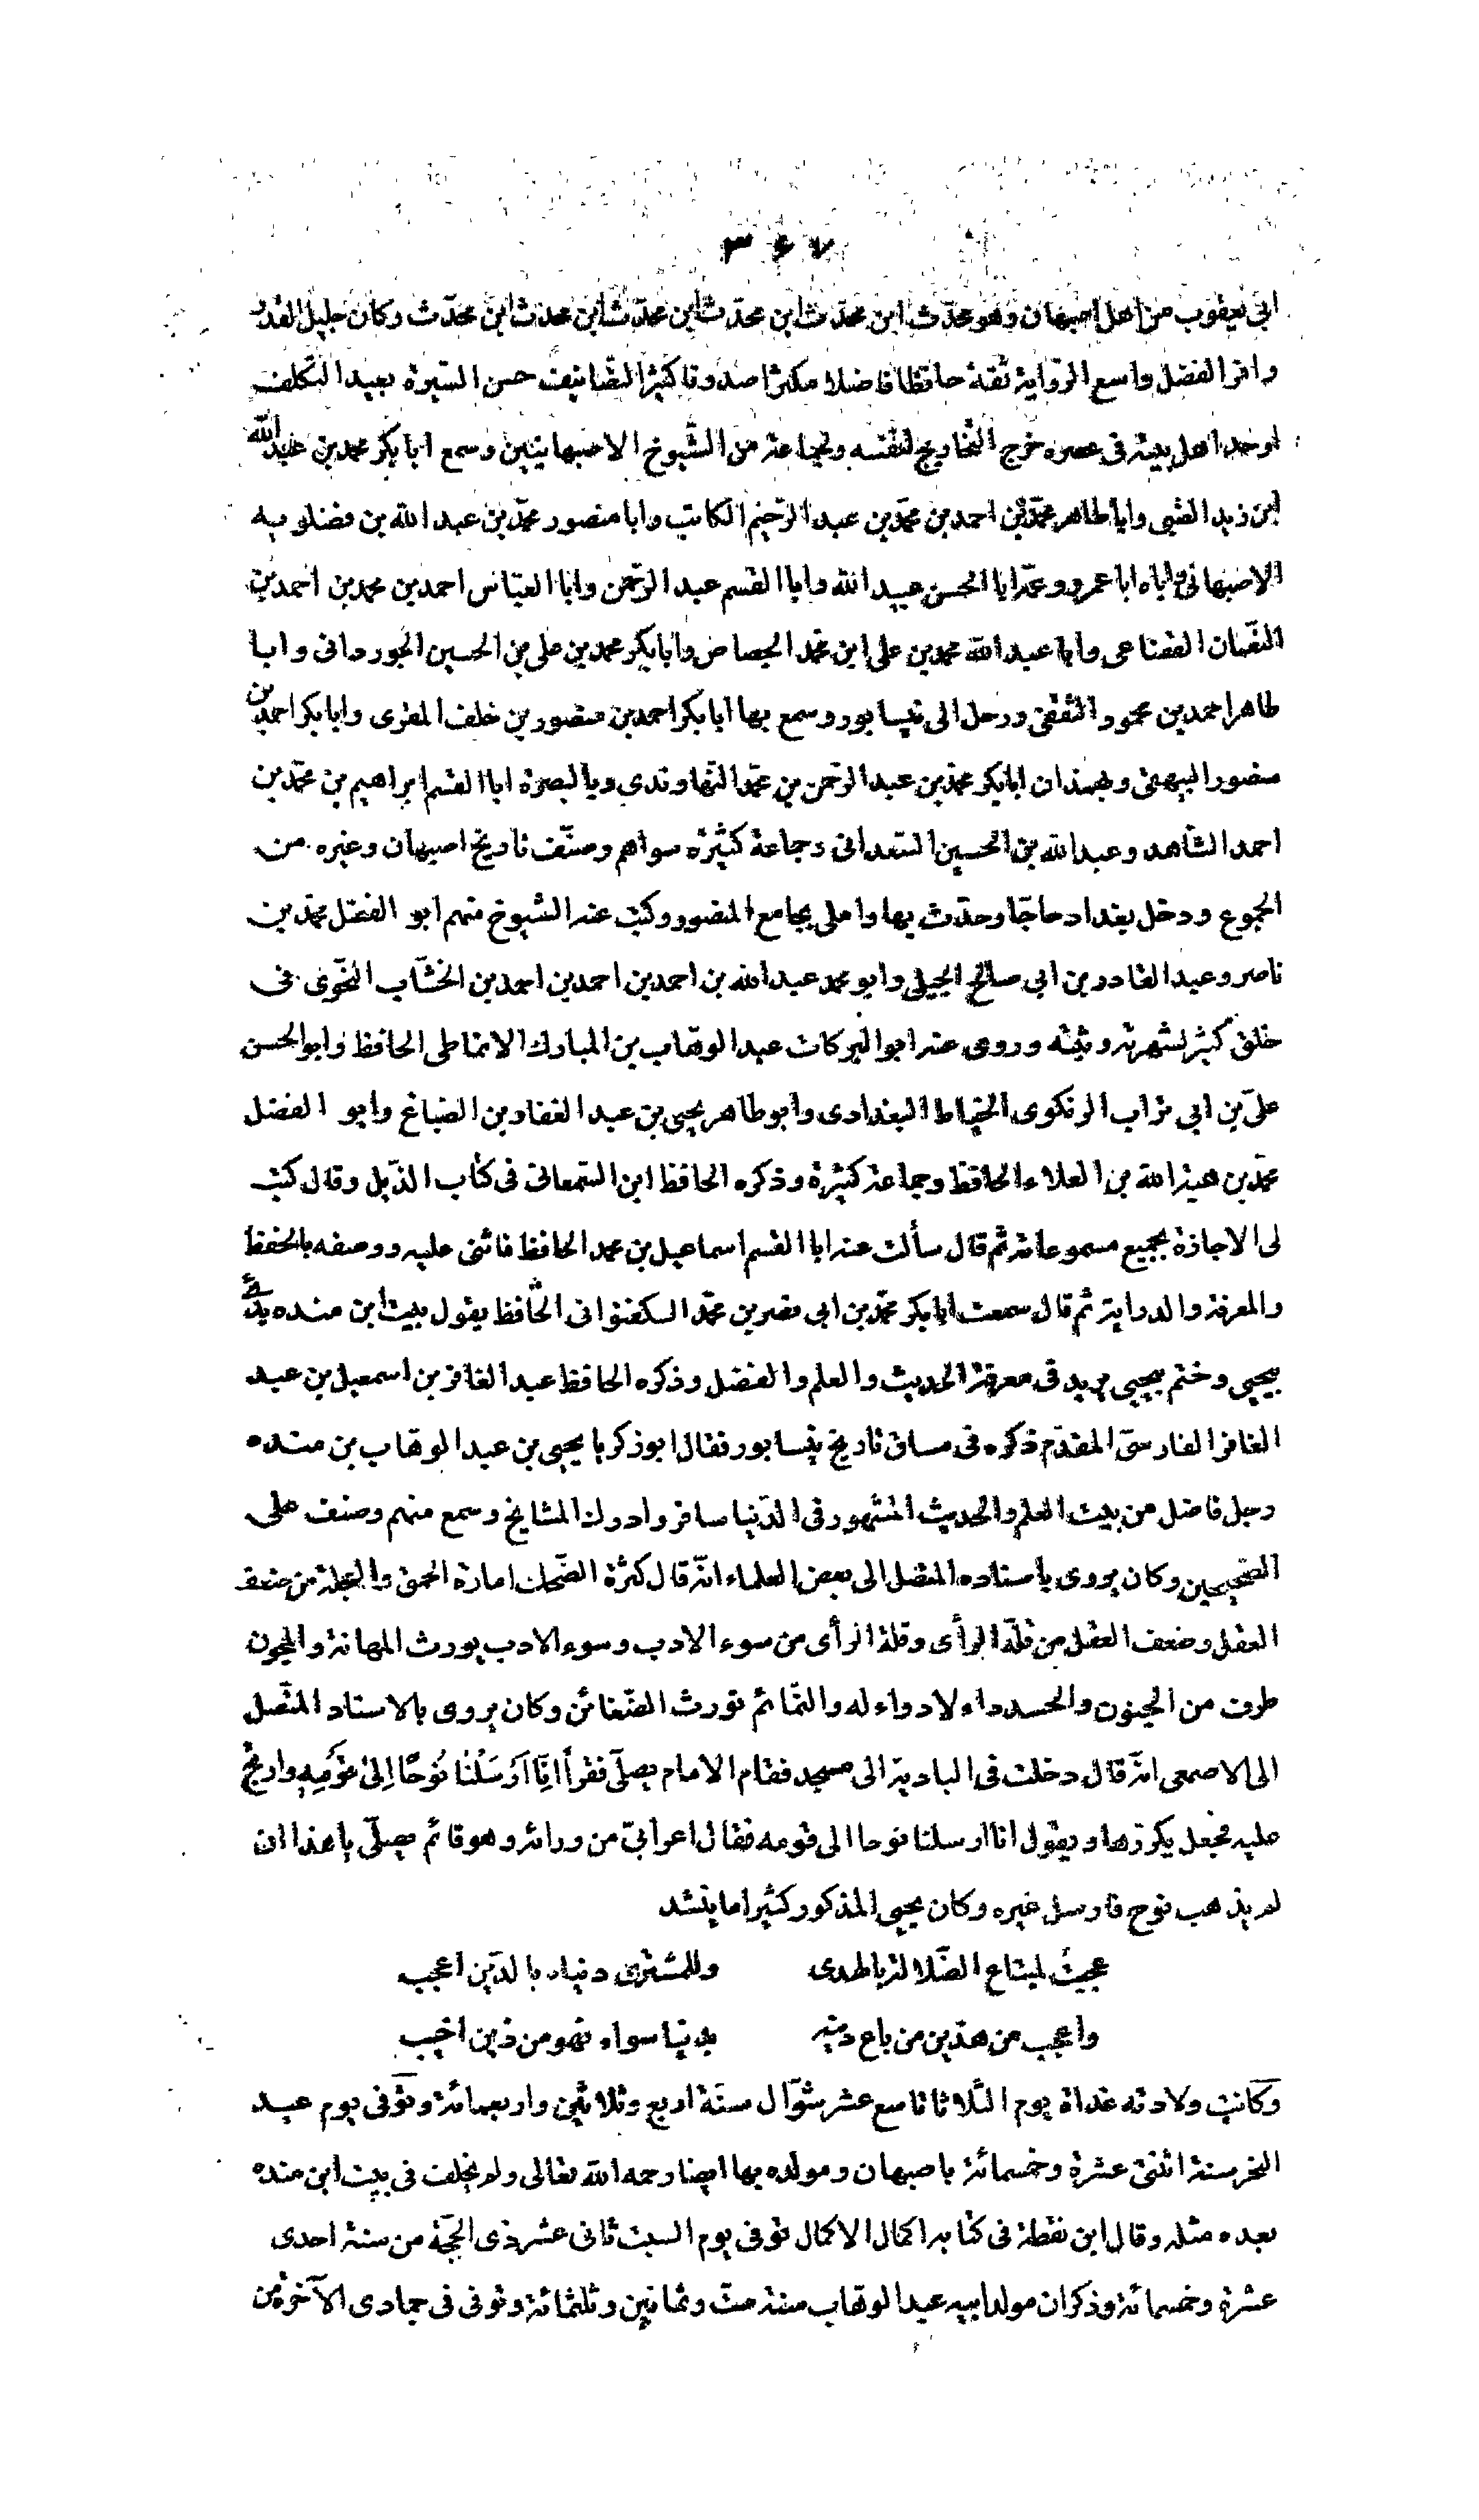 ٣٦٧
ابى يعقوب من اهل اصبهان وهو محدّث ابن محدّث ابن محدّث ابن محدّث ابن محدث ابن محدّث وكان جليل القدر
وافر الفضل واسع الرواية ثقة حافظا فاضلا مكثرا صدوقا كثير التصانيف حسن السيرة بعيد التكلف
اوحد اهل بيته فى عصره خرج التخاريج لنفسه ولجماعة من الشيوخ الاصبهانيين وسمع ابا بكر محمد بن عبد الله
ابن زيد الضبى وابا طاهر محمّد بن احمد بن محمّد بن عبد الرحيم الكاتب وابا منصور محمّد بن عبد الله بن فضلويه
الاصبهانى واباه ابا عمرو وعمّه ابا الحسن عبيد الله وابا القسم عبد الرّحمن وابا العبّاس احمد بن محمد بن احمد بن
النعمان القضاعى وابا عبد الله محمد بن على ابن محمد الجصاص وابا بكر محمد بن على بن الحسين الجوردانى وابا
طاهر احمد بن محمود الثقفى ورحل الى نيسابور وسمع بها ابا بكر احمد بن منصور بن خلف المقرى وابا بكر احمد بن
منصور البيهقى وبهمذان ابا بكر محمّد بن عبد الرحمن بن محمّد النّهاوندى وبالبصرة ابا القسم ابراهيم بن محمّد بن
احمد الشاهد وعبد الله بن الحسين السعدانى وجماعة كثيرة سواهم وصنّف تاريخ اصبهان وغيره من
الجموع ودخل بغداد حاجّا وحدّث بها واملى بجامع المنصور وكتب عنه الشيوخ منهم ابو الفضل محمّد بن
ناصر وعبد القادر بن ابى صالح الجيلى وابو محمد عبد الله بن احمد بن احمد بن احمد بن الخشّاب النحّوى فى
خلق كثير لشهرته وثقته وروى عنه ابو البركات عبد الوهّاب بن المبارك الانماطى الحافظ وابو الحسن
علىّ بن ابى تراب الزنكوى الخياط البغدادى وابو طاهر يحيى بن عبد الغفار بن الصباغ وابو الفضل
محمّد بن هبة الله بن العلاء الحافظ وجماعة كثيرة وذكره الحافظ ابن السّمعانى فى كتاب الذّيل وقال كتب
لى الاجازة بجميع مسموعاته ثم قال سألت عنه ابا القسم اسماعيل بن محمد الحافظ فاثنى عليه ووصفه بالحفظ
والمعرفة والدراية ثم قال سمعت ابا بكر محمّد بن ابى نصر بن محمّد الحافظ يقول بيت ابن منده بدئ
بيحيى وختم بيحيى يريد فى معرفة الحديث والعلم والفضل وذكره الحافظ عبد الغافر بن اسمعيل بن عبد
الغافر الفارسىّ المقدّم ذكره فى مساق تاريخ نيسابور فقال ابو زكريا يحيى بن عبد الوهاب بن منده
رجل فاضل من بيت العلم والحديث المشهور فى الدّنيا سافر وادرك المشايخ وسمع منهم وصنف على
الصّحيحين وكان يروى باسناده المتصل الى بعض العلماء انّه قال كثرة الضّحك امارة الحمق والعجلة من ضعف
العقل وضعف العقل من قلّة الرأى وقلة الرأى من سوء الادب وسوء الادب يورث المهانة والمجون
طرف من الجنون والحسد داء لا دواء له والنّمائم تورث الضّغائن وكان يروى بالاسناد المتّصل
الى الاصمعى انّه قال دخلت فى البادية الى مسجد فقام الامام يصلّى فقرأ اِنَّا اَرْسَلْنا نُوحًا اِلىٰ قَوْمِهِ وارتج
عليه فجعل يكررها ويقول انا ارسلنا نوحا الى قومه فقال اعرابىّ من ورائه وهو قائم يصلّى يا هذا ان
لم يذهب نوح فارسل غيره وكان يحيى المذكور كثيرا ما ينشد
عجبت لمبتاع الضّلالة بالهدى وللمشترى دنياه بالدّين اعجب
واعجب من هذين من باع دينه بدنيا سواه فهو من ذين اخيب
وكانت ولادته غداة يوم الثّلاثا تاسع عشر شوّال سنة اربع وثلاثين واربعمائة وتوّفى يوم عيد
النحر سنة اثنتى عشرة وخمسمائة باصبهان ومولده بها ايضا رحمه الله تعالى ولم يخلف فى بيت ابن منده
بعده مثله وقال ابن نقطة فى كتابه اكمال الاكمال توفى يوم السبت ثانى عشر ذى الحجّة من سنة احدى
عشرة وخمسمائة وذكر ان مولد ابيه عبد الوهّاب سنة ستّ وثمانين وثلثمائة وتوفى فى جمادى الآخرة من